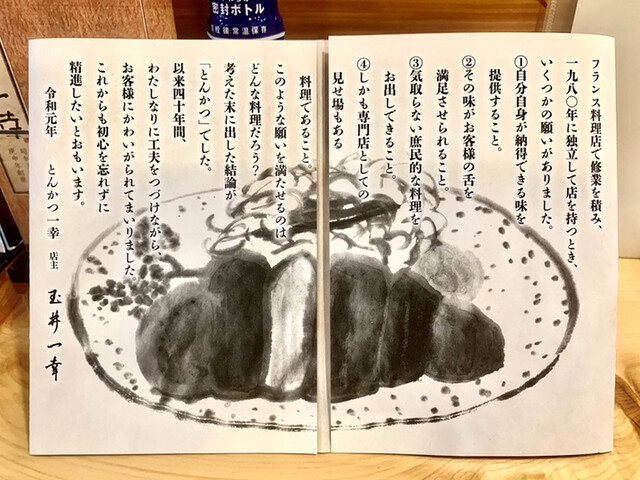 密封ボトル
開栓後常温保存
フランス料理店で修業を積み、
一九八〇年に独立して店を持つとき、
いくつかの願いがありました。
①自分自身が納得できる味を
提供すること。
②その味がお客様の舌を
満足させられること。
③気取らない庶民的な料理を
お出しできること。
④しかも専門店としての
見せ場もある
料理であること。
このような願いを満たせるのは
どんな料理だろう?
考えた末に出した結論が
「とんかつ」でした。
以来四十年間、
わたしなりに工夫をつづけながら、
お客様にかわいがられてまいりました。
これからも初心を忘れずに
精進したいとおもいます。
令和元年 とんかつ一幸 店主 玉井一幸